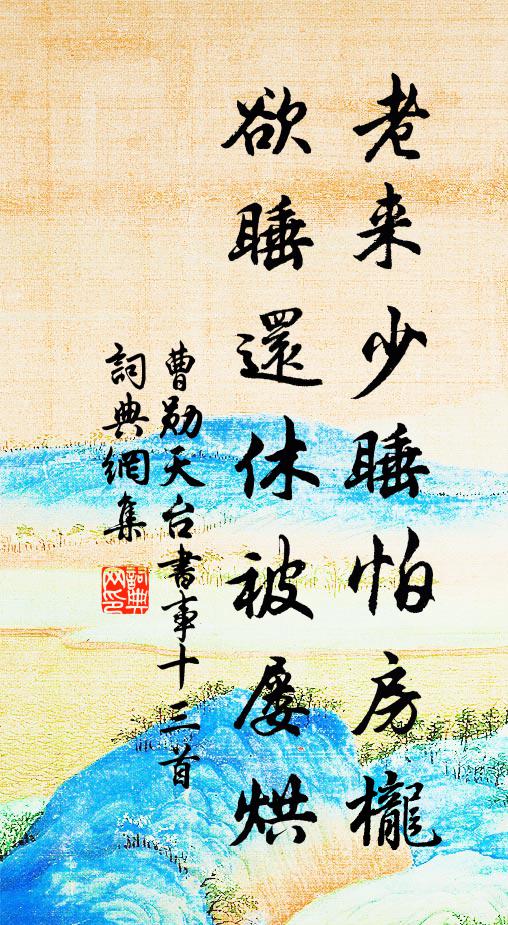 老来少睡怕房櫳
欲睡還休被屡烘
曹勛天台書事十三首
詞典網集
詞典网印